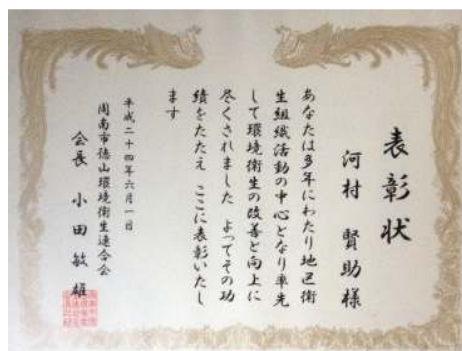 表彰状
河村 賢助 様
あなたは多年にわたり地区衛
生組織活動の中心となり率先
して環境衛生の改善と向上に
尽くされました よってその功
績をたたえ ここに表彰いたし
ます
平成二十四年六月一日
周南市徳山環境衛生連合会
会長 小田敏雄